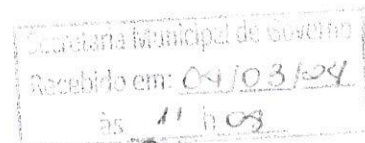 Secretaria Municipal de Governo
Recebido em: 09/03/04
às 11 h 08